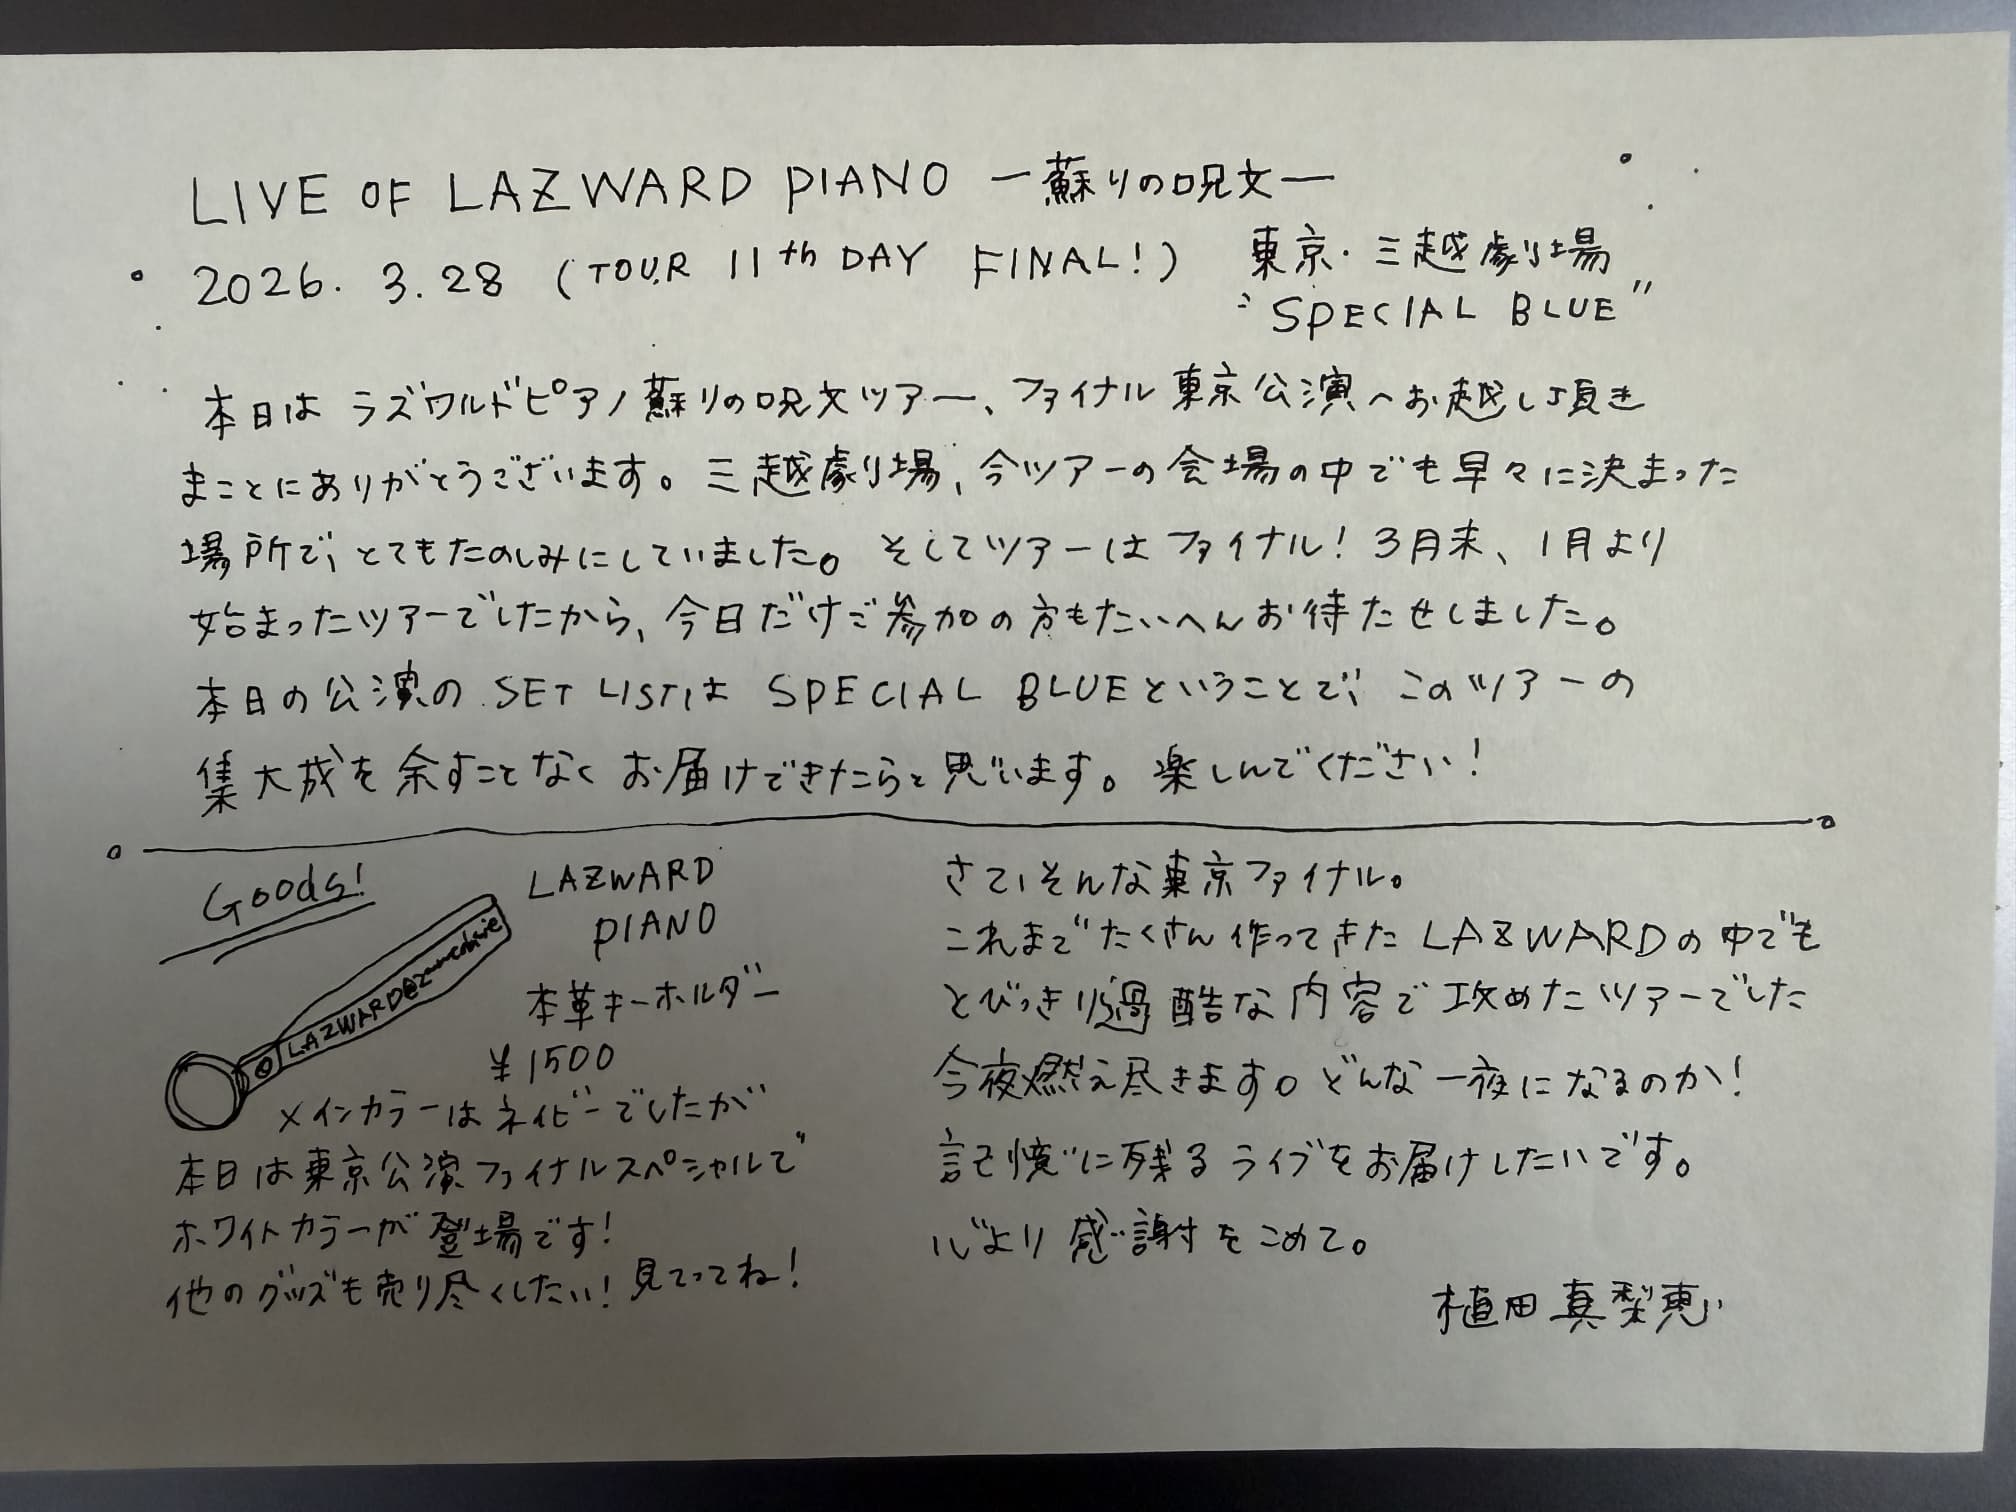 LIVE OF LAZWARD PIANO ー蘇りの呪文ー
2026. 3. 28 (TOUR 11th DAY FINAL!) 東京・三越劇場
"SPECIAL BLUE"
本日は ラズワルドピアノ蘇りの呪文ツアー、ファイナル東京公演へお越し頂き
まことにありがとうございます。三越劇場、今ツアーの会場の中でも早々に決まった
場所で、とてもたのしみにしていました。そしてツアーはファイナル！3月末、1月より
始まったツアーでしたから、今日だけご参加の方もたいへんお待たせしました。
本日の公演の SET LISTは SPECIAL BLUEということで、このツアーの
集大成を余すことなくお届けできたらと思います。楽しんでください！
Goods!
LAZWARD
PIANO
LAZWARD@
本革キーホルダー
¥1500
メインカラーはネイビーでしたが
本日は東京公演ファイナルスペシャルで
ホワイトカラーが登場です！
他のグッズも売り尽くしたい！見てってね！
さて、そんな東京ファイナル。
これまでたくさん作ってきたLAZWARDの中でも
とびっきり過酷な内容で攻めたツアーでした
今夜燃え尽きます。どんな一夜になるのか！
記憶に残るライブをお届けしたいです。
心より感謝をこめて。
植田真梨恵